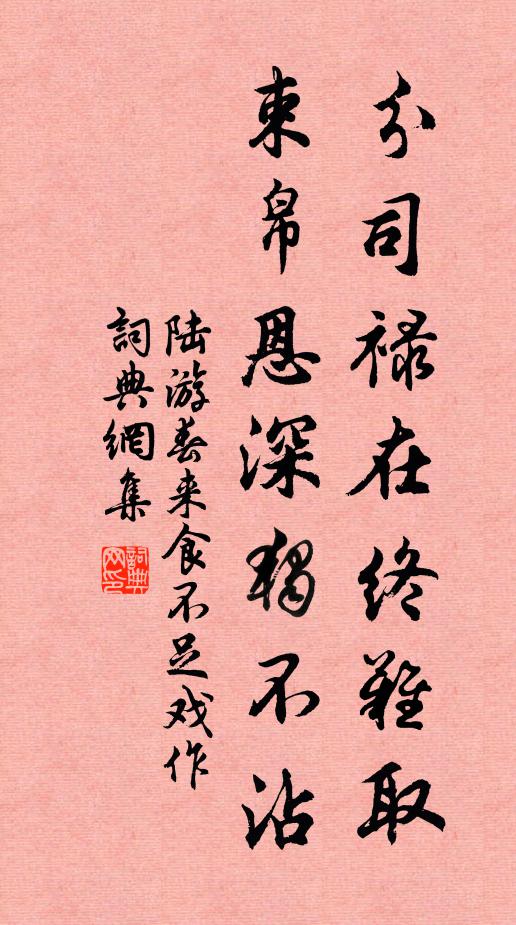 分司禄在终難取
束帛恩深独不沾
陆游春来食不足戏作
詞典網集
詞典网印